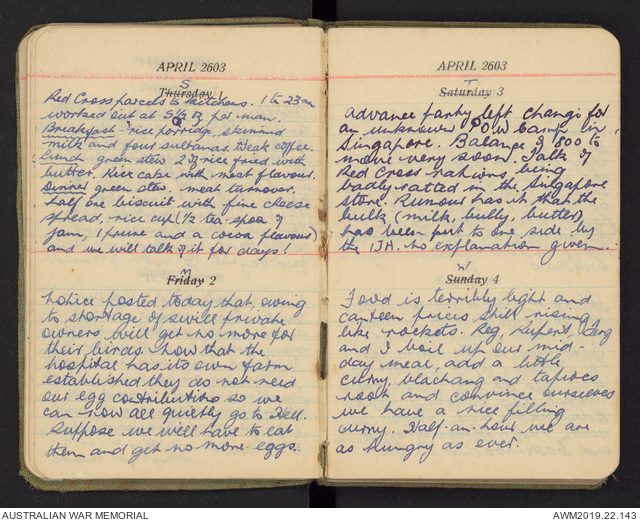 APRIL 2603
S
Thursday 1
Red Cross parcels to kitchens. 1 to 23 men
worked out at 5½ oz per man.
Breakfast - rice porridge, skimmed
milk and four sultanas. Weak coffee.
Lunch green stew 2 oz rice fried with
butter. Rice cake with meat flavour.
Dinner green stew. meat turnover.
half one biscuit with fine cheese
spread, rice cup (½ tea spoon of
jam, 1 prune and a cocoa flavour)
and we will talk of it for days!
M
Friday 2
Notice posted today that, owing
to shortage of swill private
owners will get no more for
their birds. Now that the
hospital has its own farm
established they do not need
our egg contributions so we
can now all quietly go to Hell.
Suppose we will have to eat
them and get no more eggs.
APRIL 2603
T
Saturday 3
Advance party left Changi for
an unknown POW Camp in
Singapore. Balance of 800 to
move very soon. Talk of
Red Cross rations being
badly ratted in the Singapore
store. Rumour has it that the
bulk (milk, bully, butter)
has been put to one side by
the IJA. no explanation given.
W
Sunday 4
Food is terribly light and
canteen prices still rising
like rockets. Reg, Rupert,
and I boil up our mid-
day meal, add a little
curry, blachang and tapioca
root and convince ourselves
we have a nice filling
curry. Half-an-hour we are
as hungry as ever.
AUSTRALIAN WAR MEMORIAL
AWM2019.22.143